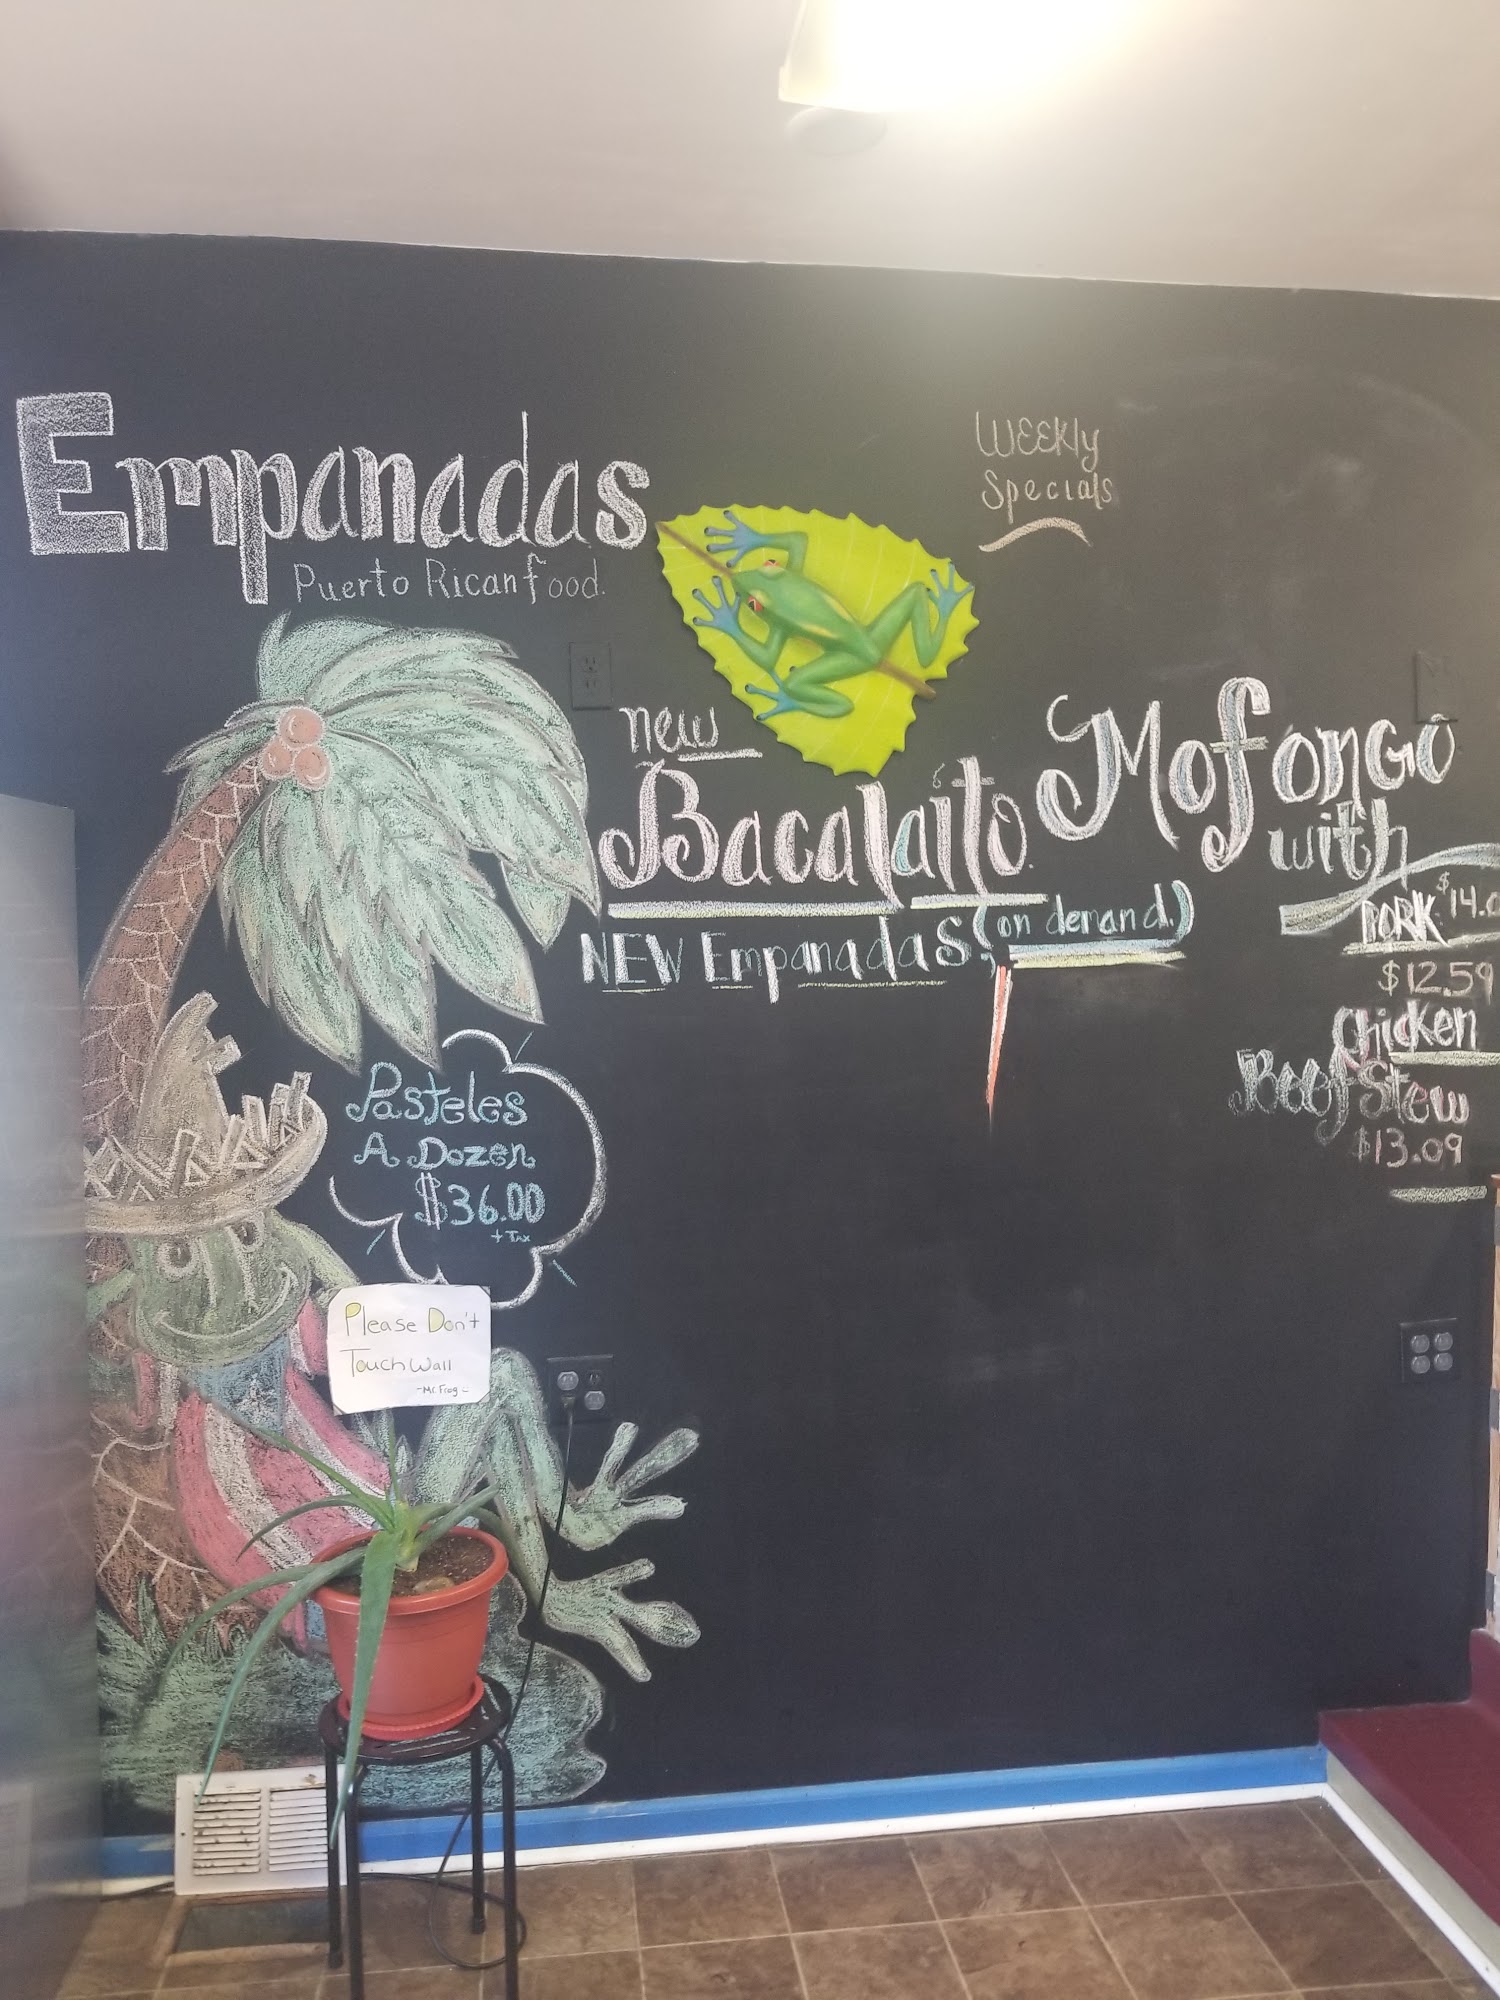 Empanadas
Puerto Rican food.
Weekly
Specials
new
Bacalaito
NEW Empanadas. (on demand.)
Mofongo
with
PORK $14.0
$12.59
Chicken
Beef Stew
$13.09
Pasteles
A Dozen
$36.00
+ Tax
Please Don't
Touch Wall
-Mr. Frog-